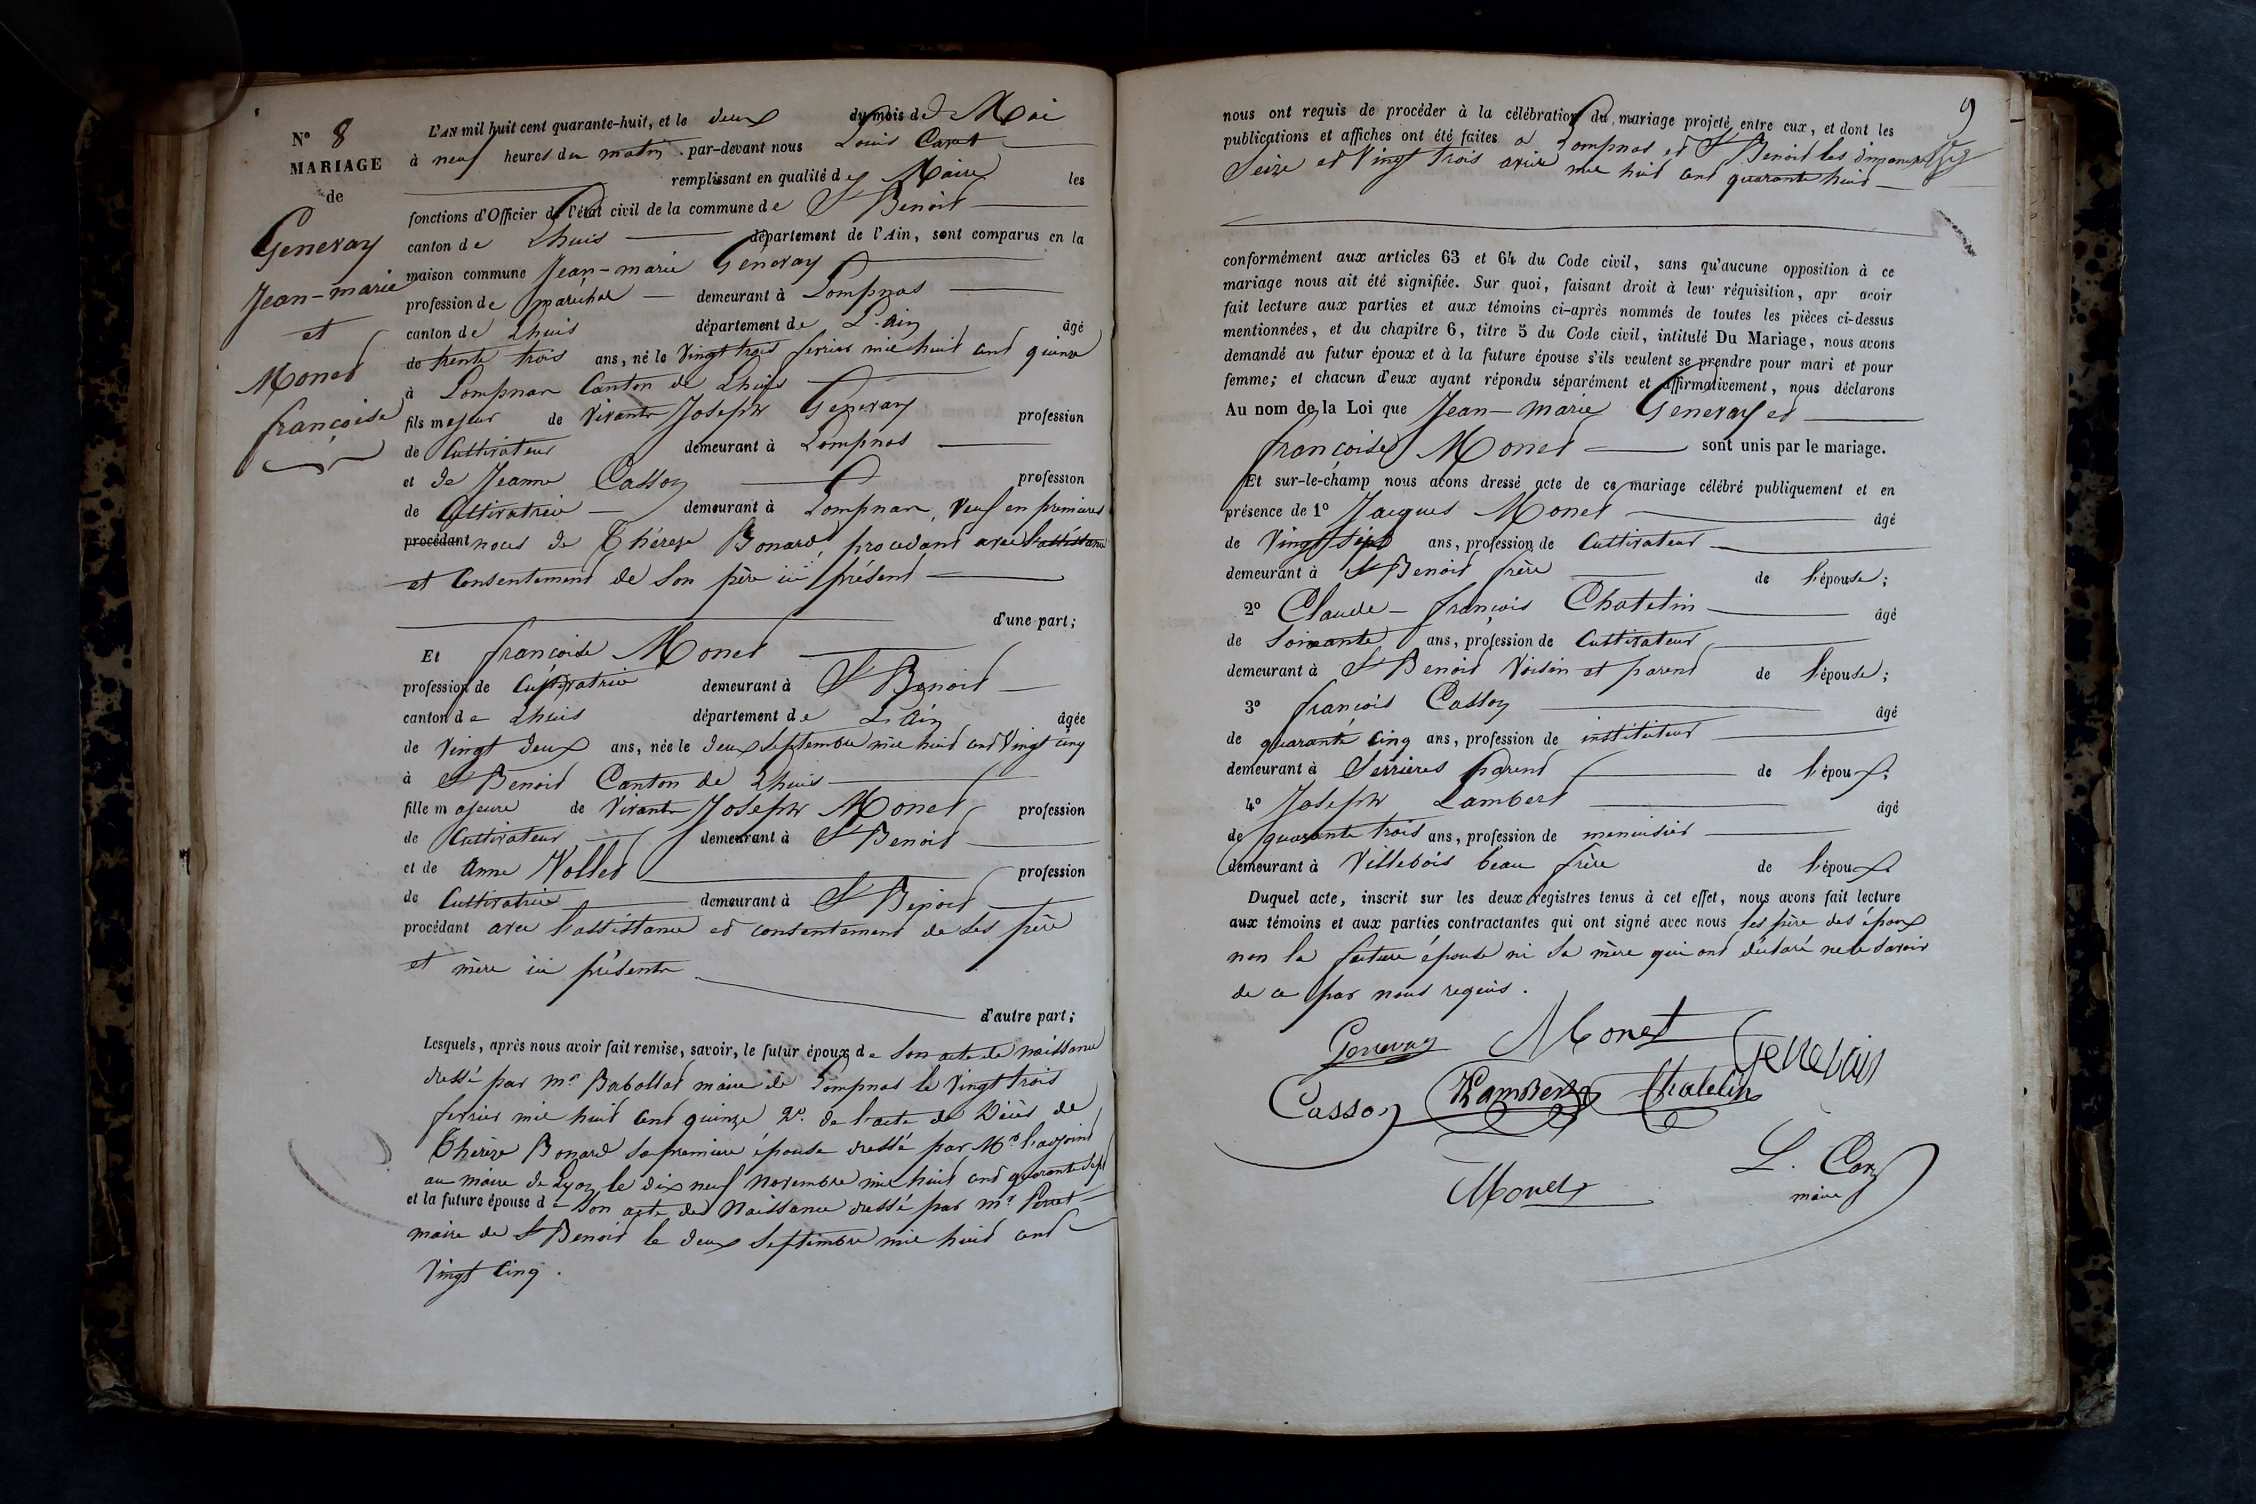 N° 8
MARIAGE
de
Genevay
Jean-marie
et
Monet
françoise
L'AN mil huit cent quarante-huit, et le deux du mois de Mai
à neuf heures du matin par-devant nous Louis Caret
remplissant en qualité de Maire les
fonctions d'Officier de l'état civil de la commune de St Benoit
canton de Lhuis département de l'Ain, sont comparus en la
maison commune Jean-marie Genevay
profession de maréchal demeurant à Lompnas
canton de Lhuis département de L'ain âgé
de trente trois ans, né le Vingt trois fevrier mil huit cent quinze
à Lompnas Canton de Lhuis
fils majeur de vivants Joseph Genevay profession
de Cultivateur demeurant à Lompnas
et de Jeanne Casson profession
de Cultivatrice demeurant à Lompnas, veuf en premieres
procédant noces de Thérèse Bonard, procedant avec l'assistance
et Consentement de son père ici présent
d'une part;
Et françoise Monet
profession de Cultivatrice demeurant à St Benoit
canton de Lhuis département de L'Ain âgée
de Vingt deux ans, née le deux septembre mil huit cent Vingt cinq
à St Benoit Canton de Lhuis
fille majeure de Vivants Joseph Monet profession
de Cultivateur demeurant à St Benoit
et de Anne Vollet profession
de Cultivatrice demeurant à St Benoit
procédant avec l'assistance et consentement de ses père
et mère ici présents
d'autre part;
Lesquels, après nous avoir fait remise, savoir, le futur époux de son acte de naissance
dressé par mr Babollat maire de Lompnas le Vingt trois
fevrier mil huit cent quinze 2°. de l'acte de décès de
Thérèse Bonard sa première épouse dressé par Mr l'adjoint
au maire de Lyon le dix neuf novembre mil huit cent quarante sept
et la future épouse de son acte de Naissance dressé par mr
maire de St Benoit le deux Septembre mil huit cent
Vingt Cinq.
9
nous ont requis de procéder à la célébration du mariage projeté entre eux, et dont les
publications et affiches ont été faites à Lompnas et St Benoit les dimanches
Seize et Vingt trois avril mil huit cent quarante huit
conformément aux articles 63 et 64 du Code civil, sans qu'aucune opposition à ce
mariage nous ait été signifiée. Sur quoi, faisant droit à leur réquisition, apr avoir
fait lecture aux parties et aux témoins ci-après nommés de toutes les pièces ci-dessus
mentionnées, et du chapitre 6, titre 5 du Code civil, intitulé Du Mariage, nous avons
demandé au futur époux et à la future épouse s'ils veulent se prendre pour mari et pour
femme; et chacun d'eux ayant répondu séparément et affirmativement, nous déclarons
Au nom de la Loi que Jean-marie Genevay et
françoise Monet sont unis par le mariage.
Et sur-le-champ nous avons dressé acte de ce mariage célébré publiquement et en
présence de 1° Jacques Monet âgé
de Vingt sept ans, profession de Cultivateur
demeurant à St Benoit frère de l'épouse;
2° Claude-françois Chatelin âgé
de Soixante ans, profession de Cultivateur
demeurant à St Benoit Voisin et parent de l'épouse;
3° françois Casson âgé
de quarante cinq ans, profession de instituteur
demeurant à Serrières parent de l'époux;
4° Joseph Lambert âgé
de quarante trois ans, profession de menuisier
demeurant à Villebois beau frère de l'époux
Duquel acte, inscrit sur les deux registres tenus à cet effet, nous avons fait lecture
aux témoins et aux parties contractantes qui ont signé avec nous les père des époux
non la future épouse ni sa mère qui ont déclaré ne le savoir
de ce par nous requis.
Genevay Monet Genevay
Casson Lambert Chatelin
Monet L. Caret
maire